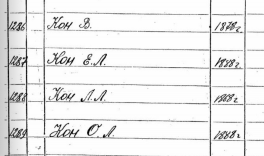 1286 Кон В. 1878 г
1287 Кон Е.Л. 1888 г
1288 Кон Л.Л. 1868 г
1289 Кон О Л. 1868 г